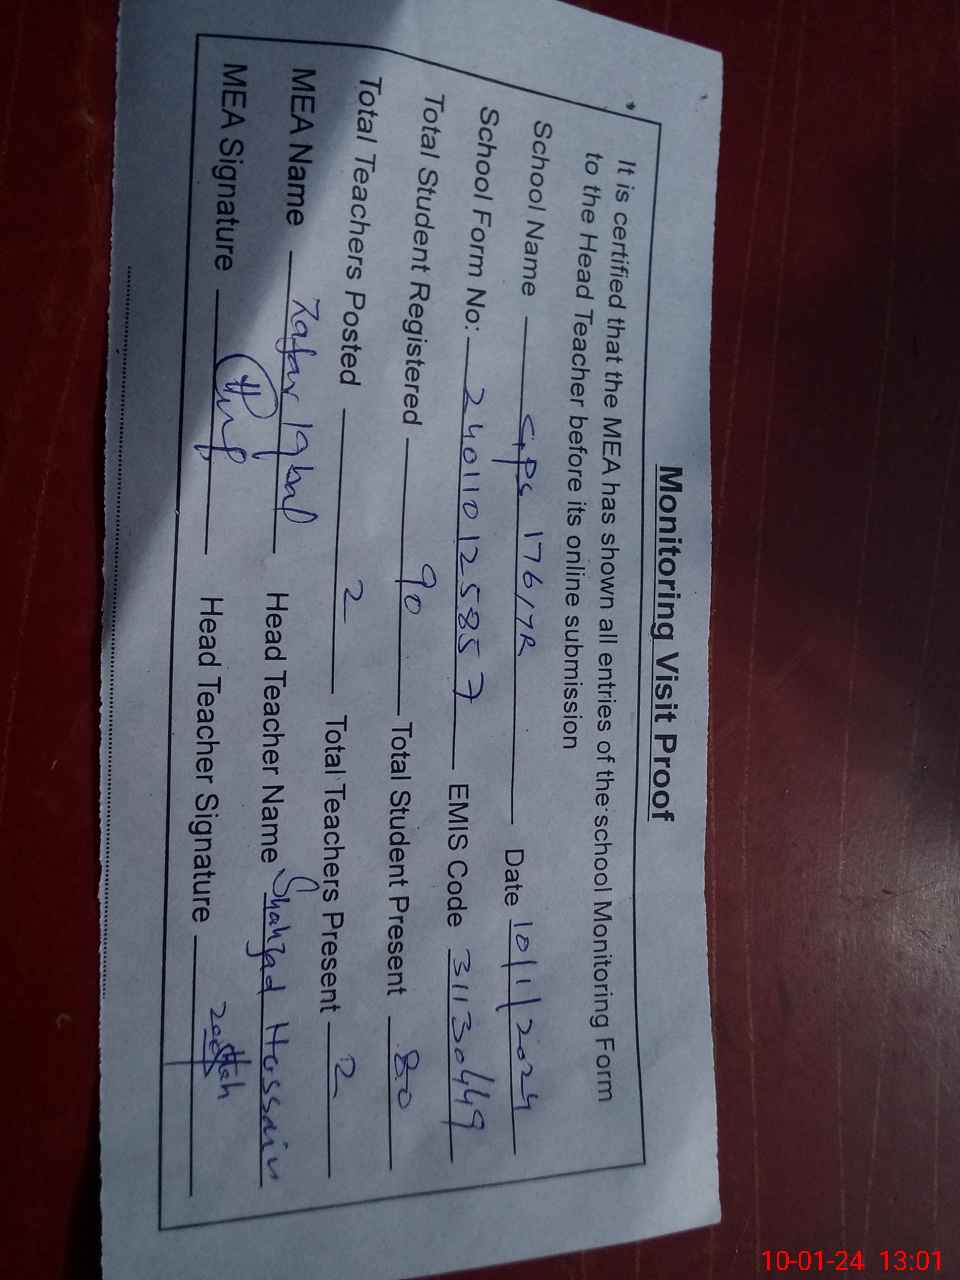 Monitoring Visit Proof
It is certified that the MEA has shown all entries of the school Monitoring Form
to the Head Teacher before its online submission
School Name GPS 176/7R Date 10/1/2024
School Form No: 240110125857 EMIS Code 31130449
Total Student Registered 90 Total Student Present 80
Total Teachers Posted 2 Total Teachers Present 2
MEA Name Zafar Iqbal Head Teacher Name Shahzad Hussain
MEA Signature Head Teacher Signature
10-01-24 13:01